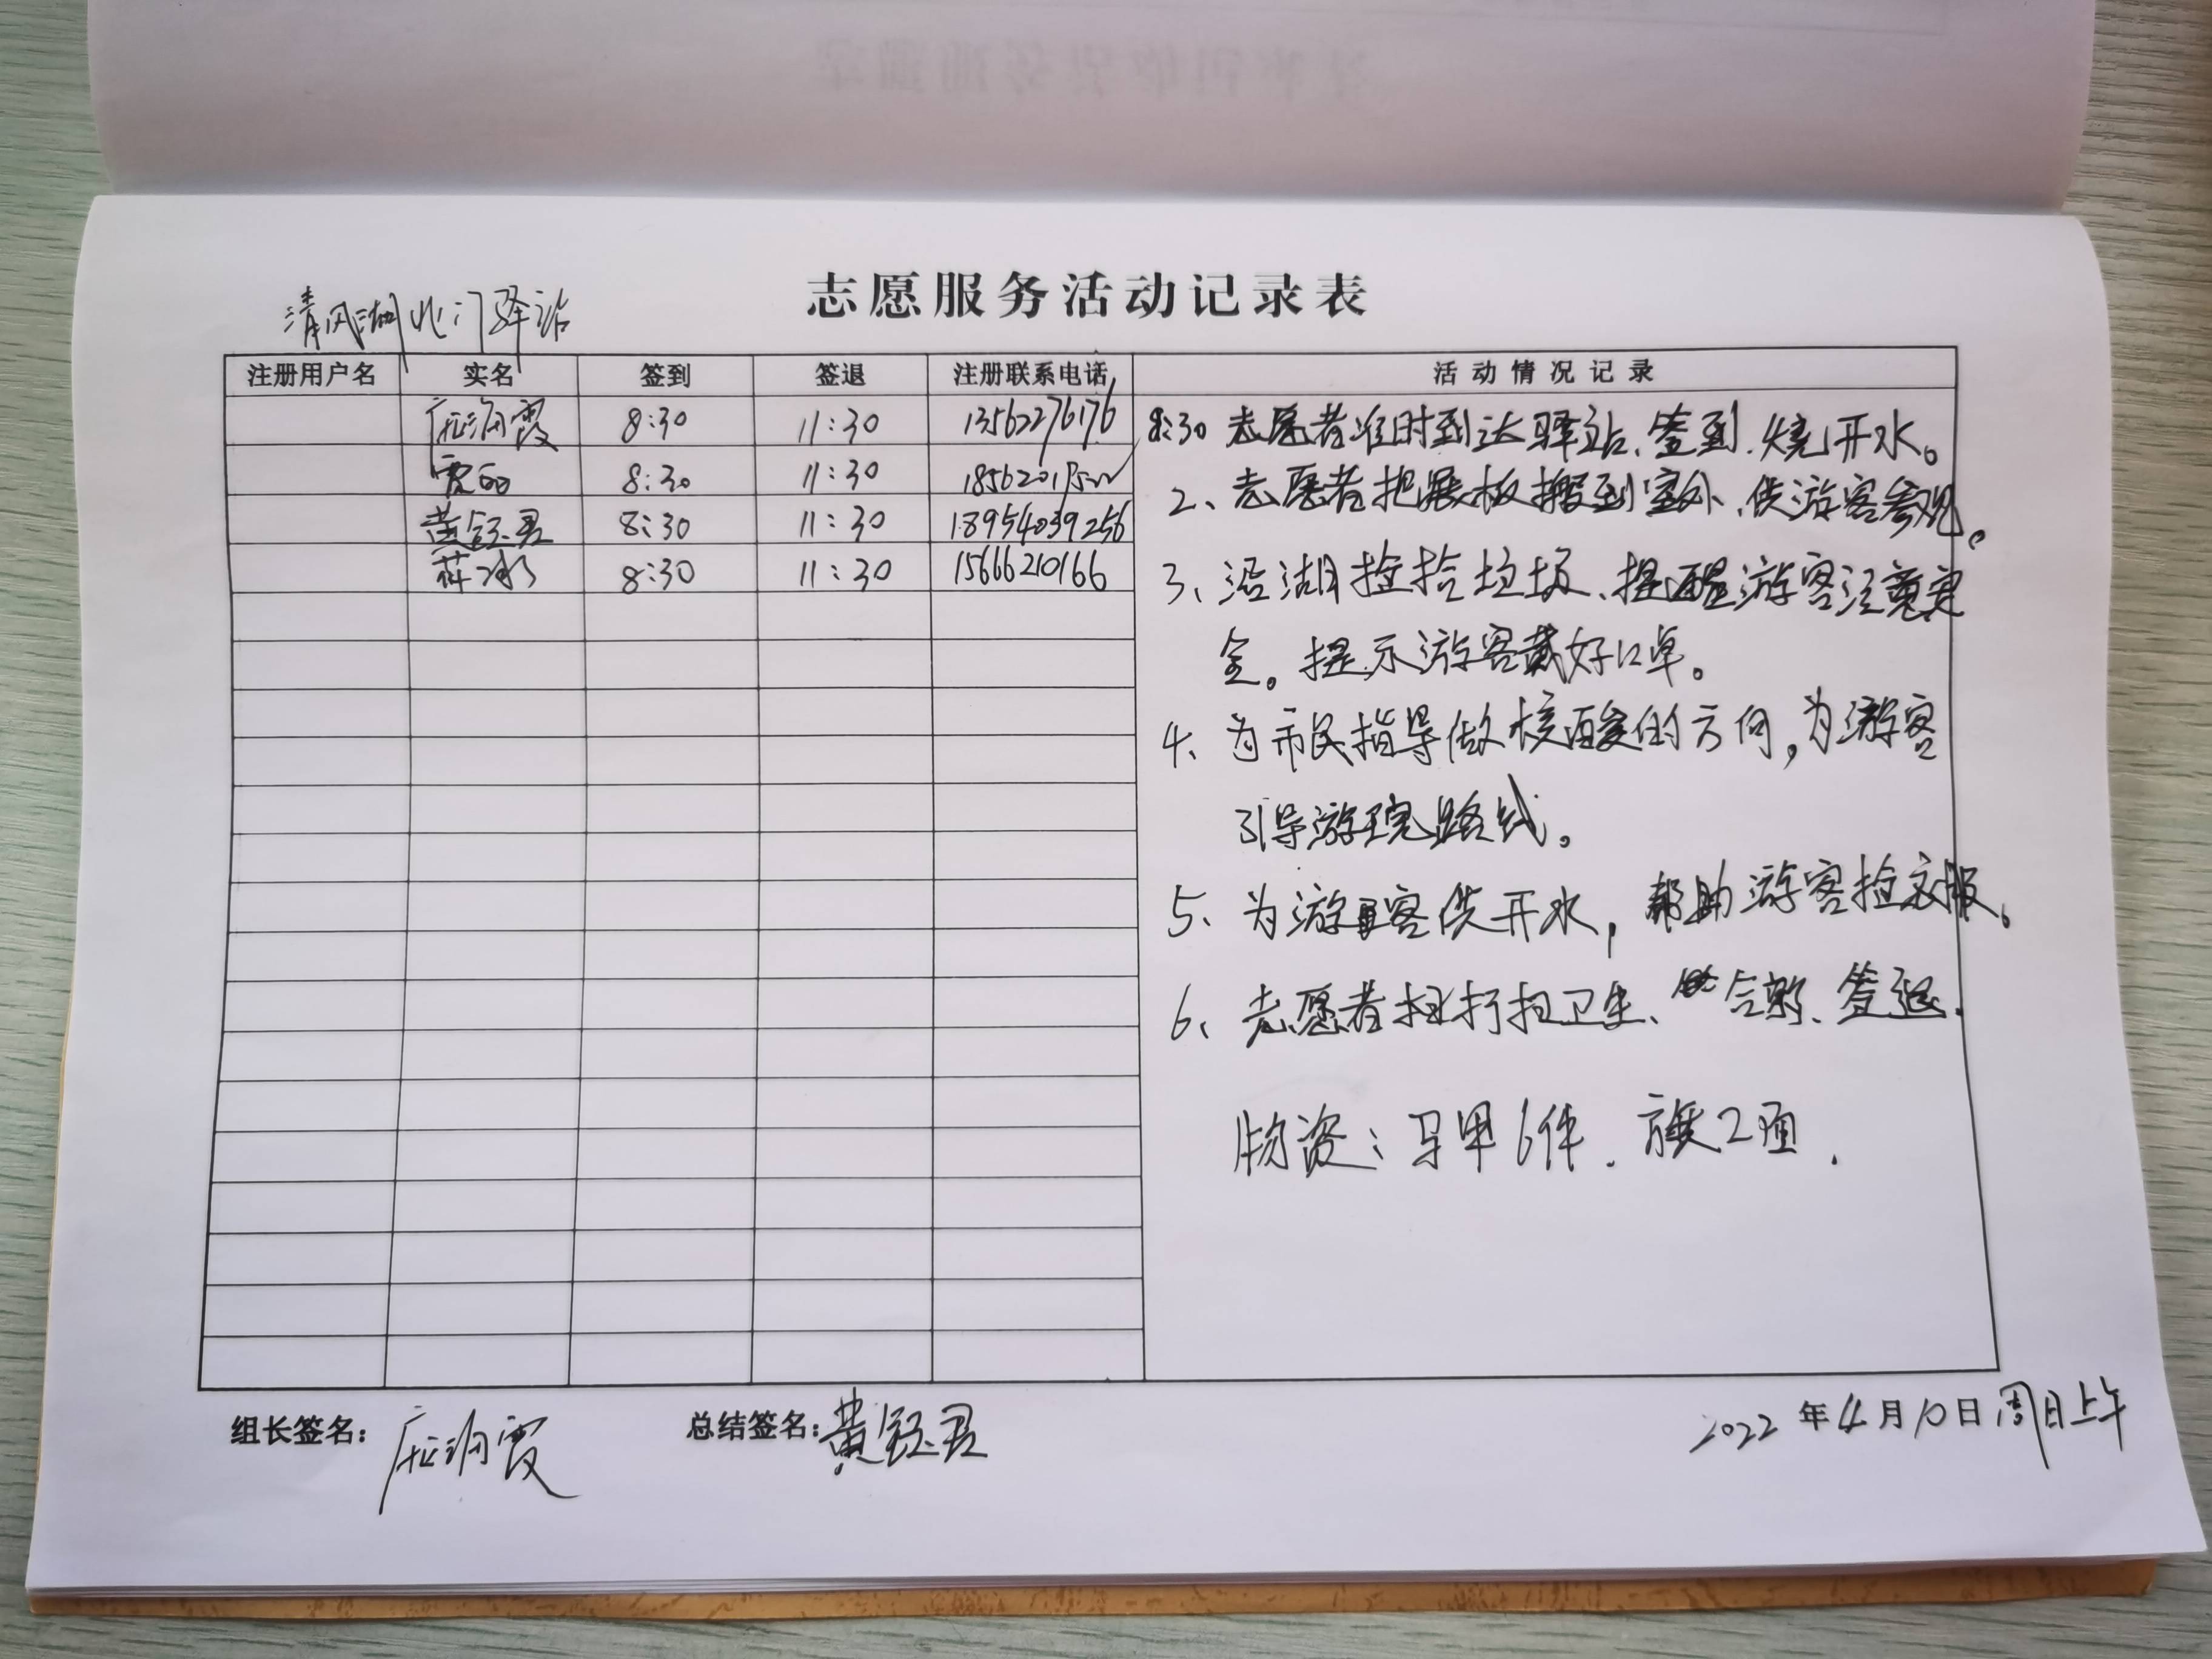 志愿服务活动记录表
清风湖北门驿站
注册用户名 实名 签到 签退 注册联系电话 活动情况记录
8:30 11:30 13562276176
8:30 11:30
黄钰君 8:30 11:30 18954039256
薛冰 8:30 11:30 15666210166
8:30 志愿者准时到达驿站、签到、烧开水。
2、志愿者把展板搬到室外、供游客参观。
3、沿湖捡拾垃圾、提醒游客注意安
全。提示游客戴好口罩。
4、为市民指导做核酸的方向,为游客
引导游玩路线。
5、为游客供开水,帮助游客捡衣服。
6、志愿者打扫卫生、合影、签退.
物资:马甲6件.旗2面.
组长签名: 总结签名:黄钰君 2022年4月10日周日上午